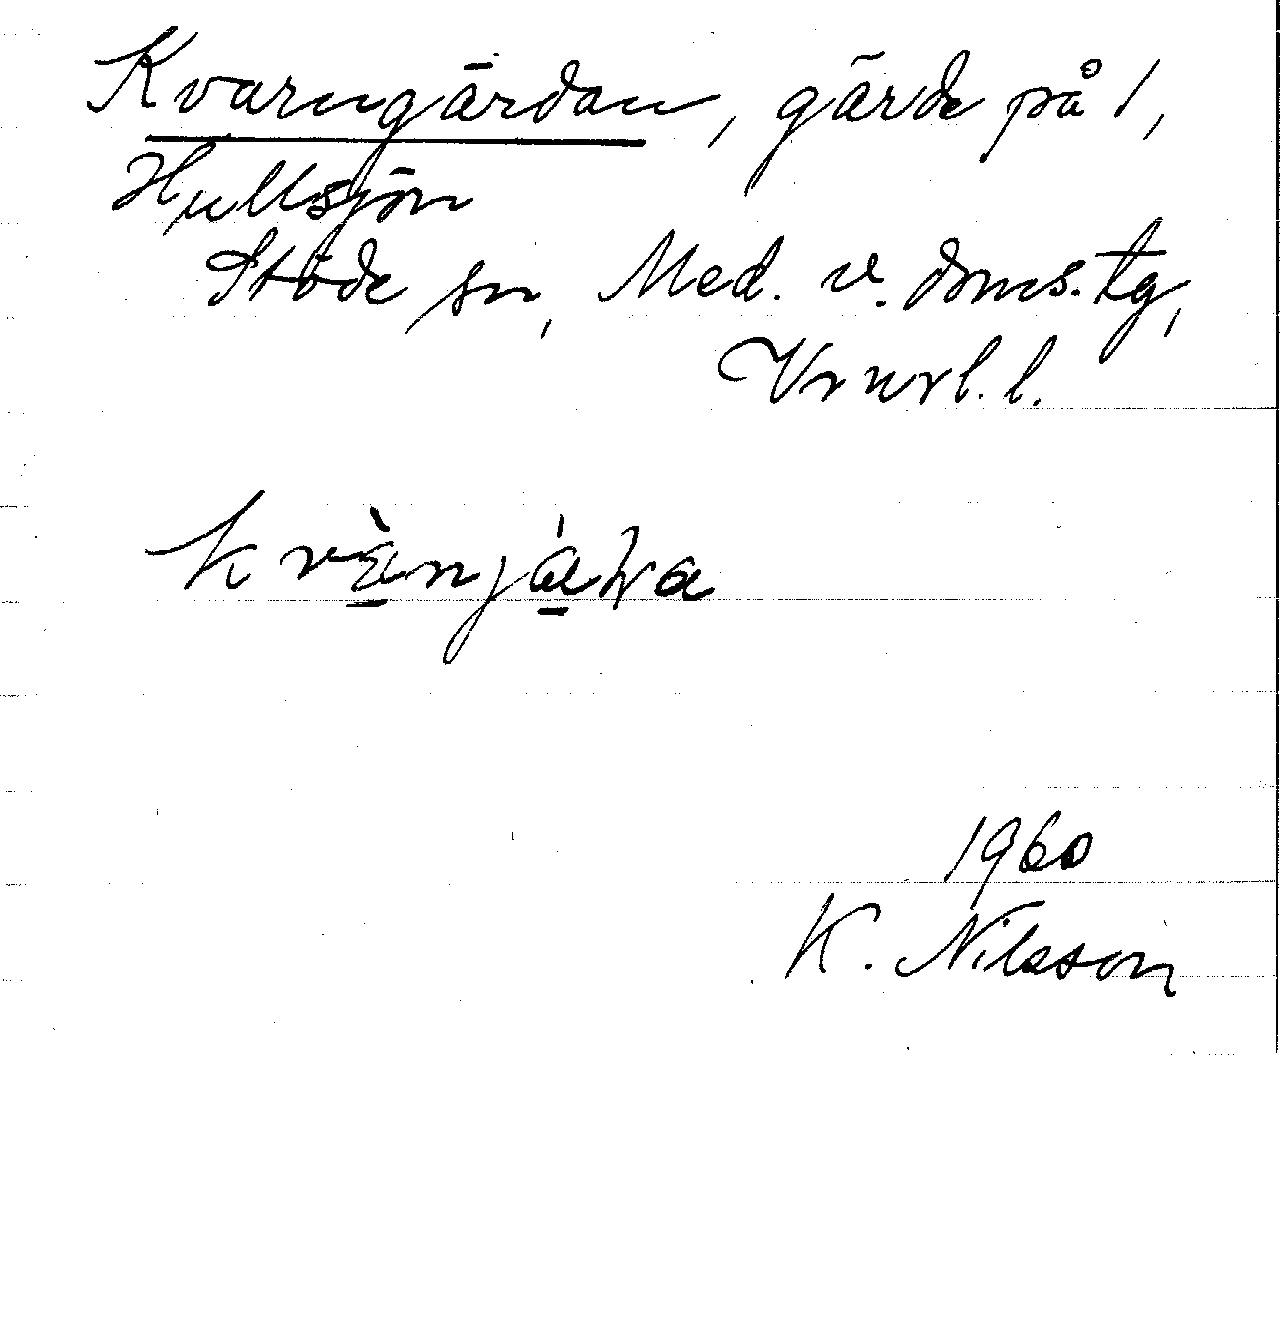 Kvarngärdan, gärde på 1,
Hullsjön
Stöde sn, Med. v. doms. tg,
Vnrl. l.
1960
K. Nilsson